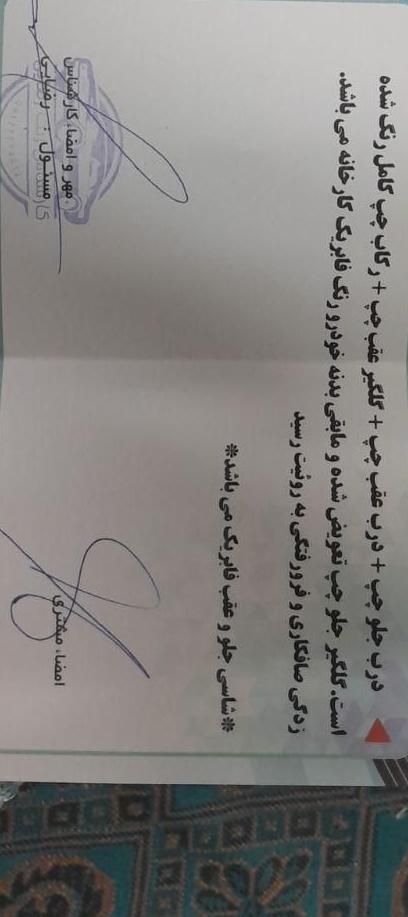 درب جلو چپ + درب عقب چپ + گلگیر عقب چپ + رکاب چپ کامل رنگ شده
است. گلگیر جلو چپ تعویض شده و مابقی بدنه خودرو رنگ فابریک کارخانه می باشد.
زدگی صافکاری و فرورفتگی به روئیت رسید
*شاسی جلو و عقب فابریک می باشد*
امضاء مشتری
مهر و امضاء کارشناس
مسئول : رضایی